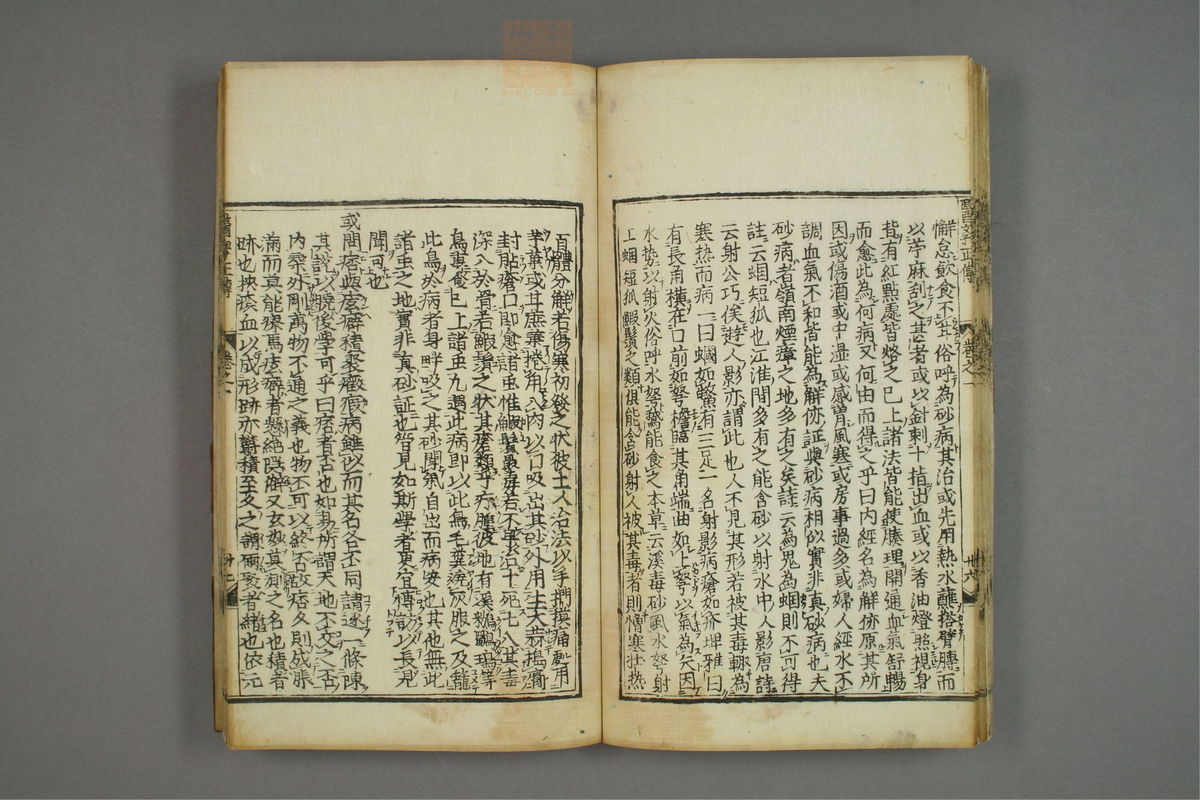 懈怠飲食不進俗呼為砂病其治或先用熱水蘸搭臂膊而
以苧麻刮之甚者或以針刺十指出血或以香油燈照視身
背有紅點處皆烙之已上諸法皆能使腠理開通血氣舒暢
而愈此為何病又何由而得之乎曰内經名為解㑊原其所
因或傷酒或中湿或感冒風寒或房事過多或婦人經水不
調血氣不和皆能為解㑊証與砂病相似實非真砂病也夫
砂病者嶺南煙瘴之地多有之矣詩云為鬼為蜮則不可得
註云蜮短狐也江淮間多有之能含砂以射水中人影唐詩
云射公巧俟遊人影亦謂此也人不見其形若被其毒輙為
寒熱而病一曰蜮如鱉有三足一名射影病瘡如疥埤雅曰
有長角横在口前如弩檐臨其角端曲如上弩以氣為矢因
水勢以射人俗呼水弩鵞能食之本草云溪毒砂風水弩射
工蜮短狐蝦鬚之類俱能含砂射人被其毒者則憎寒壮熱
百體分解若傷寒初發之状彼土人治法以手捫摸痛處用
芋葉或甘蔗葉捲角入内以口吸出其砂外用生大蒜搗膏
封貼瘡口即愈諸虫惟鰕鬚最毒若不早治十死七八其毒
深入於骨若鰕鬚之状其瘡類乎疔腫彼地有溪鵞鸂鶒等
鳥專食已上諸虫凡遇此病即以此鳥毛糞燒灰服之及籠
此鳥於病者身畔吸之其砂聞氣自出而病安也其他無此
諸虫之地實非真砂証也管見如斯學者更宜博訪以長見
聞可也
或問痞與痃癖積聚癥瘕病雖似而其名各不同請逐一條陳
其詳以曉後學可乎曰痞者否也如易所謂天地不交之否
内柔外剛萬物不通之義也物不可以終否故痞久則成脹
滿而莫能療焉痃癖者懸絶隐僻又玄妙莫測之名也積者
跡也挾痰血以成形跡亦鬱積至久之謂爾聚者緒也依元
醫學正傳
卷之一